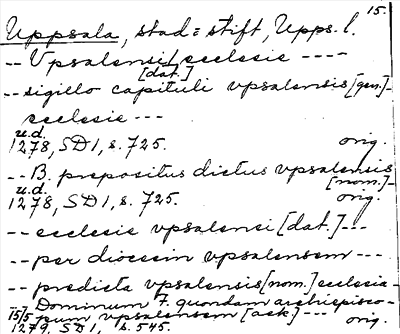 15.
Uppsala, stad = stift, Upps. l.
-- Vpsalensi ecclesie ----
[dat.]
-- sigillo capituli vpsalensis [gen.]-
ecclesie ---
u.d.
1278, SD 1, s. 725. orig.
-- B. prepositus dictus vpsalensis
[nom.]-
u.d.
1278, SD 1, s. 725. orig.
-- ecclesie vpsalensi [dat.]---
-- per diocesin vpsalensem ---
-- predicta vpsalensis [nom.] ecclesia-
-- Dominum F. quondam archiepisco-
pum vpsalensem [ack.]---
15/5 1279, SD 1, s. 545. orig.